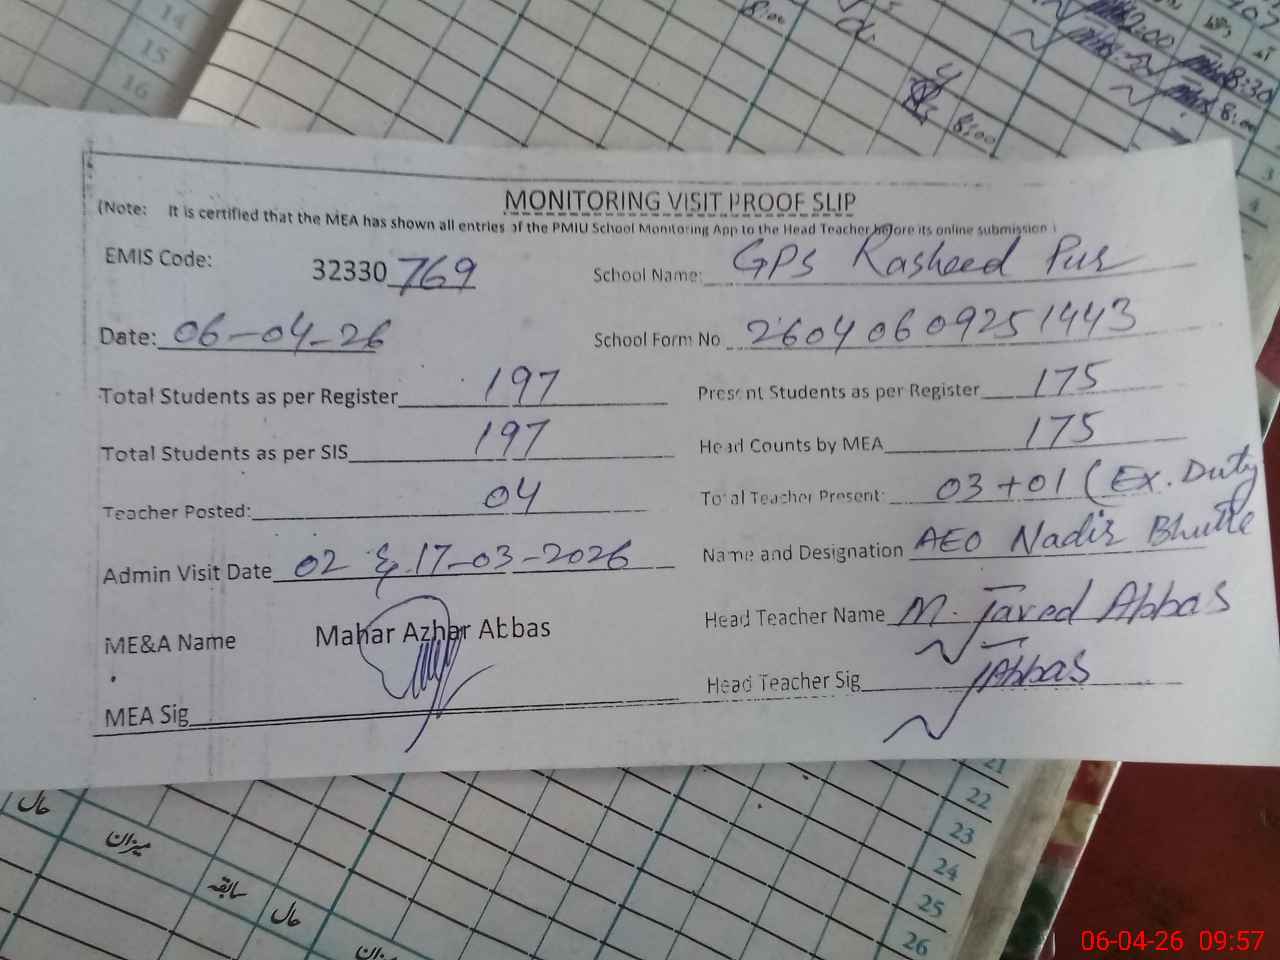 14
15
16
8:00
8:30
8:00
8:00
3
4
MONITORING VISIT PROOF SLIP
(Note: It is certified that the MEA has shown all entries of the PMIU School Monitoring App to the Head Teacher before its online submission )
EMIS Code: 32330 769 School Name: GPS Rasheed Pur
Date: 06-04-26 School Form No 26040609251443
Total Students as per Register 197 Present Students as per Register 175
Total Students as per SIS 197 Head Counts by MEA 175
Teacher Posted: 04 Total Teacher Present: 03+01 (Ex. Duty
Admin Visit Date 02 & 17-03-2026 Name and Designation AEO Nadir Bhutte
ME&A Name Mahar Azhar Abbas Head Teacher Name M. Javed Abbas
MEA Sig Head Teacher Sig JAbbas
21
22
23
24
25
26
حال
میزان
سابقہ
حال
میزان
06-04-26 09:57